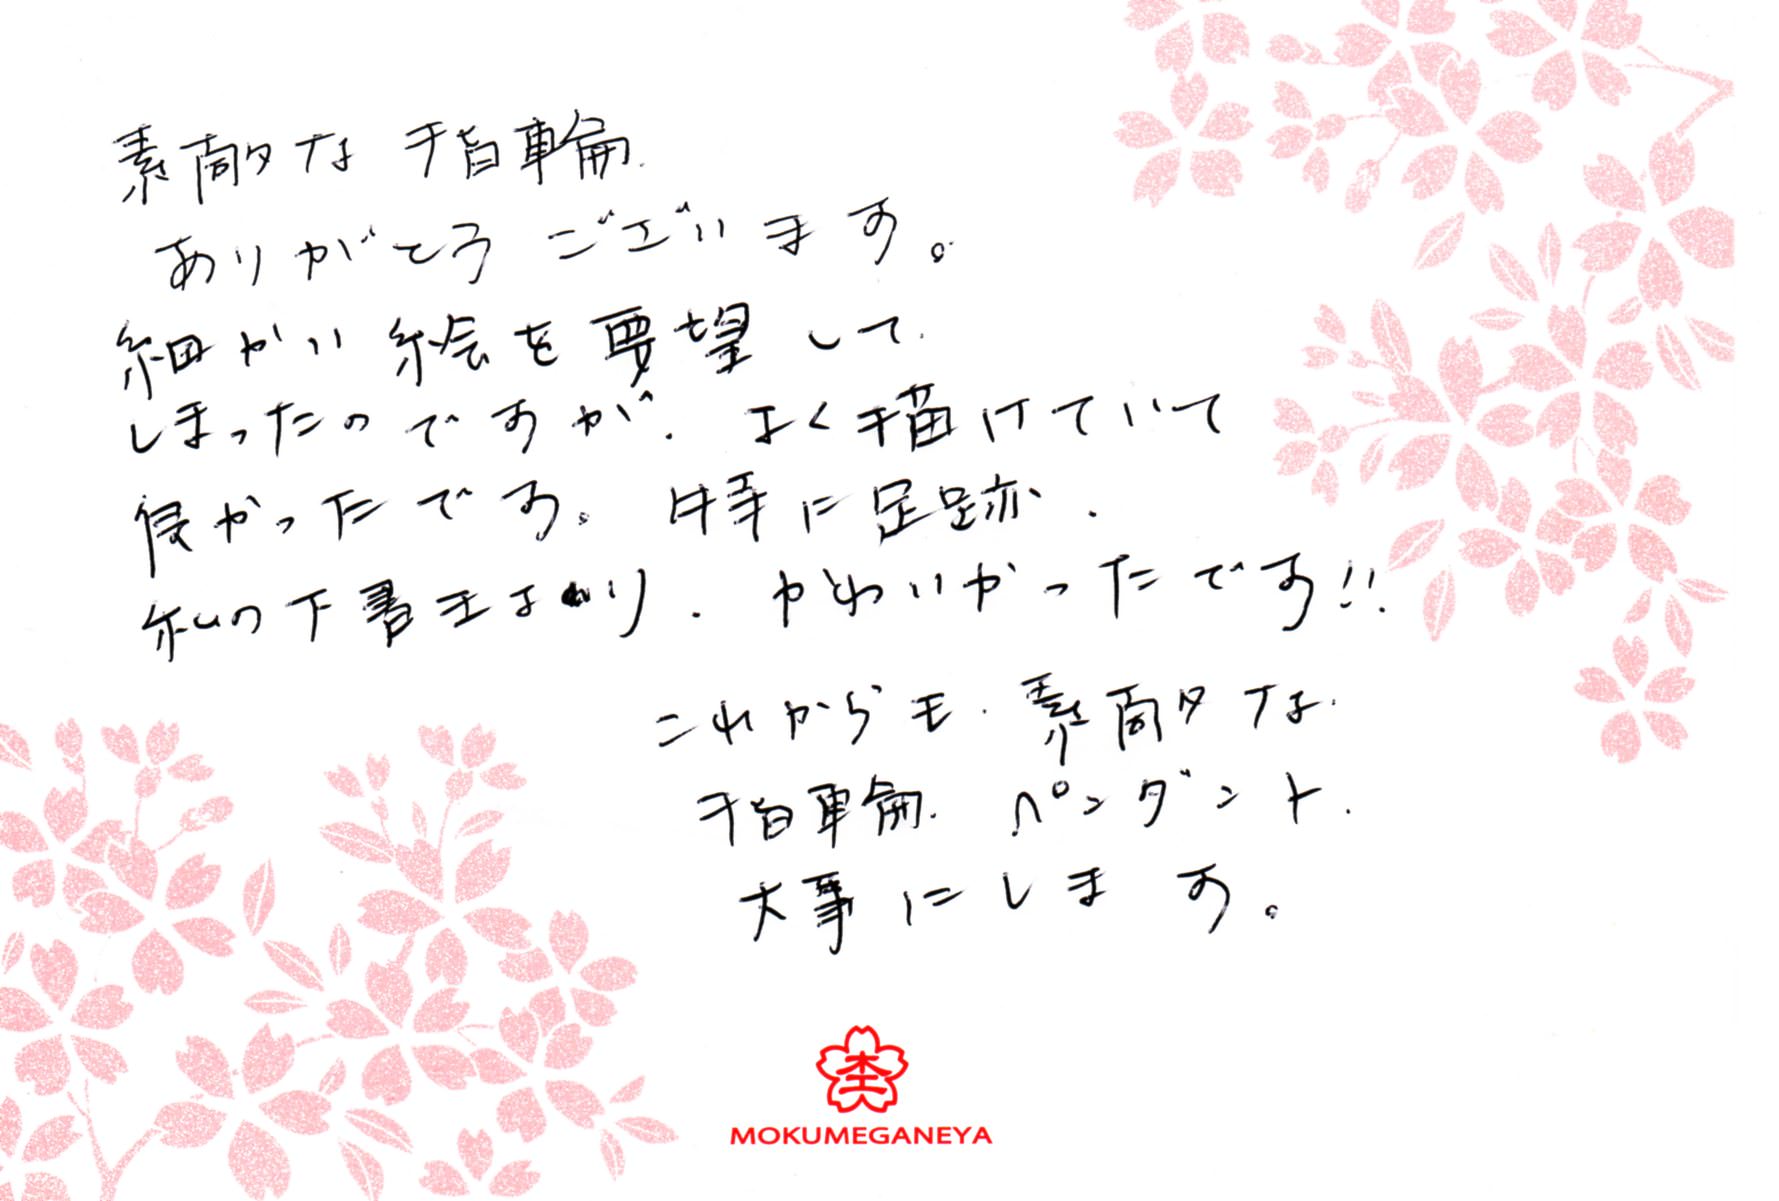 素敵な指輪
ありがとうございます。
細かい絵を要望して
しまったのですが、よく描けていて
良かったです。特に足跡、
私の下書きより、かわいかったです!!
これからも、素敵な
指輪、ペンダント、
大事にします。
杢
MOKUMEGANEYA